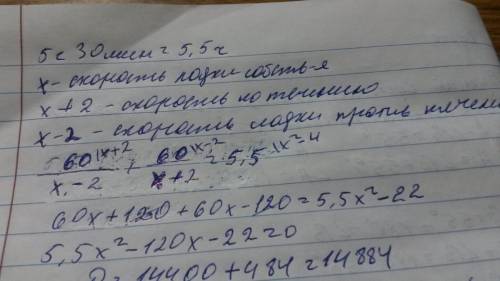 5 ч 30 мин = 5,5 ч
x - скорость лодки собств-я
x + 2 - скорость по течению
x - 2 - скорость лодки против течени
60|x+2 / x - 2 + 60|x-2 / x + 2 = 5,5 |x²-4
60x + 120 + 60x - 120 = 5,5x² - 22
5,5x² - 120x - 22 = 0
D = 14400 + 484 = 14884